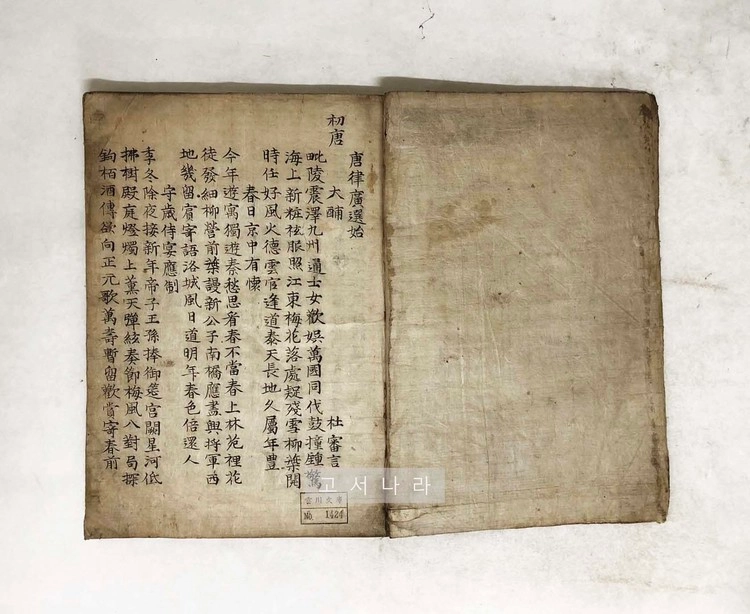 唐律廣選始
初唐
大酺 杜審言
毗陵震澤九州通士女歡娛萬國同伐鼓撞鍾驚
海上新粧袨服照江東梅花落處疑殘雪柳葉開
時任好風火德雲官逢道泰天長地久屬年豊
春日京中有懷
今年遊寓獨遊秦愁思看春不當春上林苑裡花
徒發細柳營前葉謾新公子南橋應盡興將軍西
地幾留賓寄語洛城風日道明年春色倍還人
守歲侍宴應制
季冬除夜接新年帝子王孫捧御筵宮闕星河低
拂樹殿庭燈燭上薰天彈絃奏節梅風入對局探
鉤栢酒傳欲向正元歌萬壽暫留歡賞寄春前
고서나라
№ 1424